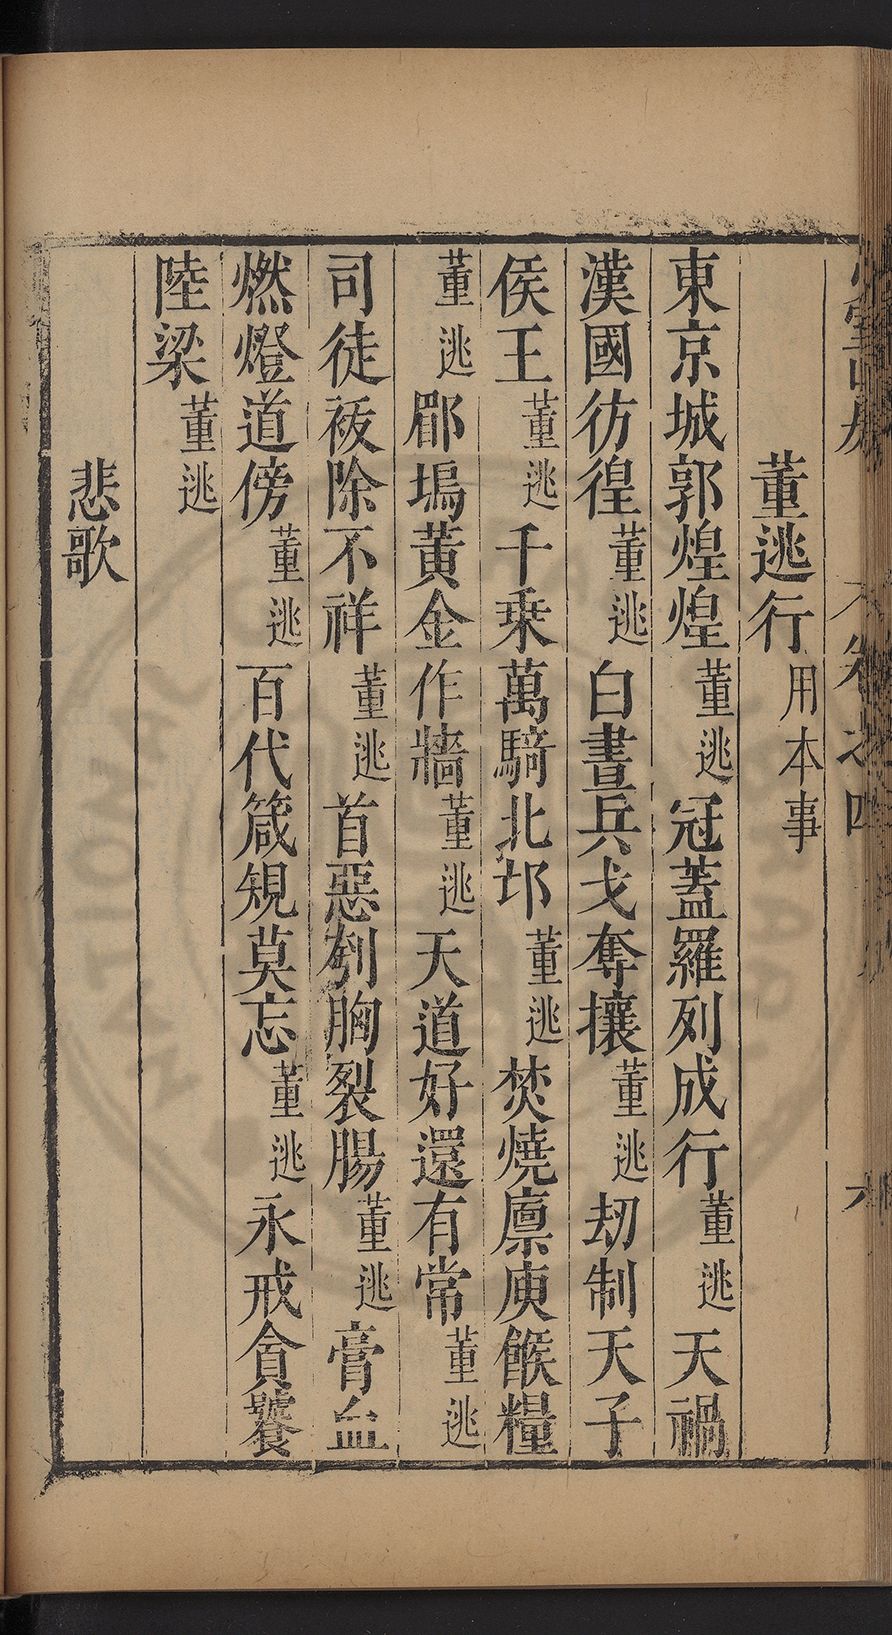 卷之四
六
董逃行用本事
東京城郭煌煌董逃冠蓋羅列成行董逃天禍
漢國彷徨董逃白晝兵戈奪攘董逃刼制天子
侯王董逃千乗萬騎北邙董逃焚燒廪庾餱糧
董逃郿塢黄金作牆董逃天道好還有常董逃
司徒祓除不祥董逃首惡刳胸裂腸董逃膏血
燃燈道傍董逃百代箴規莫忘董逃永戒貪饕
陸梁董逃
悲歌